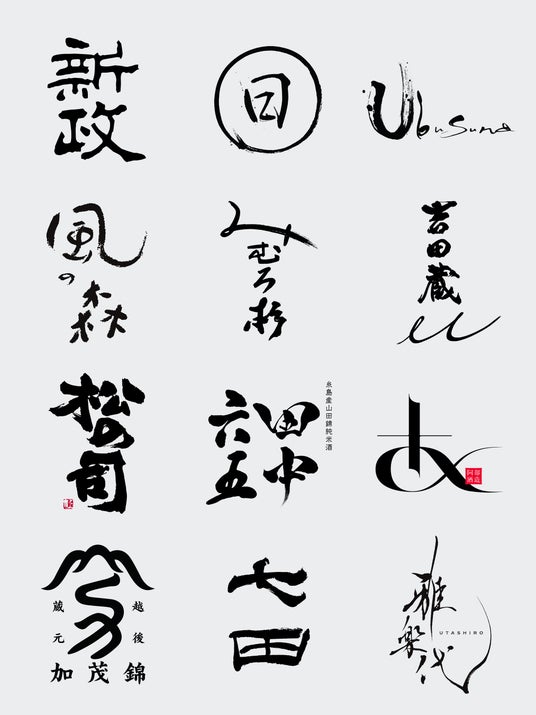 新政
日
Ubusuna
風の森
みむろ杉
吉田蔵
u
松の司
田中
六五
糸島産山田錦純米酒
あ
阿部
酒造
越後
蔵元
加茂錦
七田
雅楽代
UTASHIRO